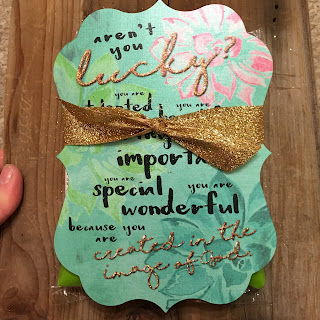 aren't
you
lucky?
you are
you are
importa
you are
special you are
wonderful
because you
are created in the
image of God.